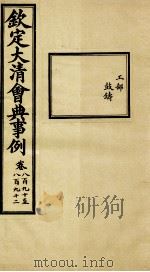 工部
鼓鑄
欽定大清會典事例
卷八百九十至
八百九十二